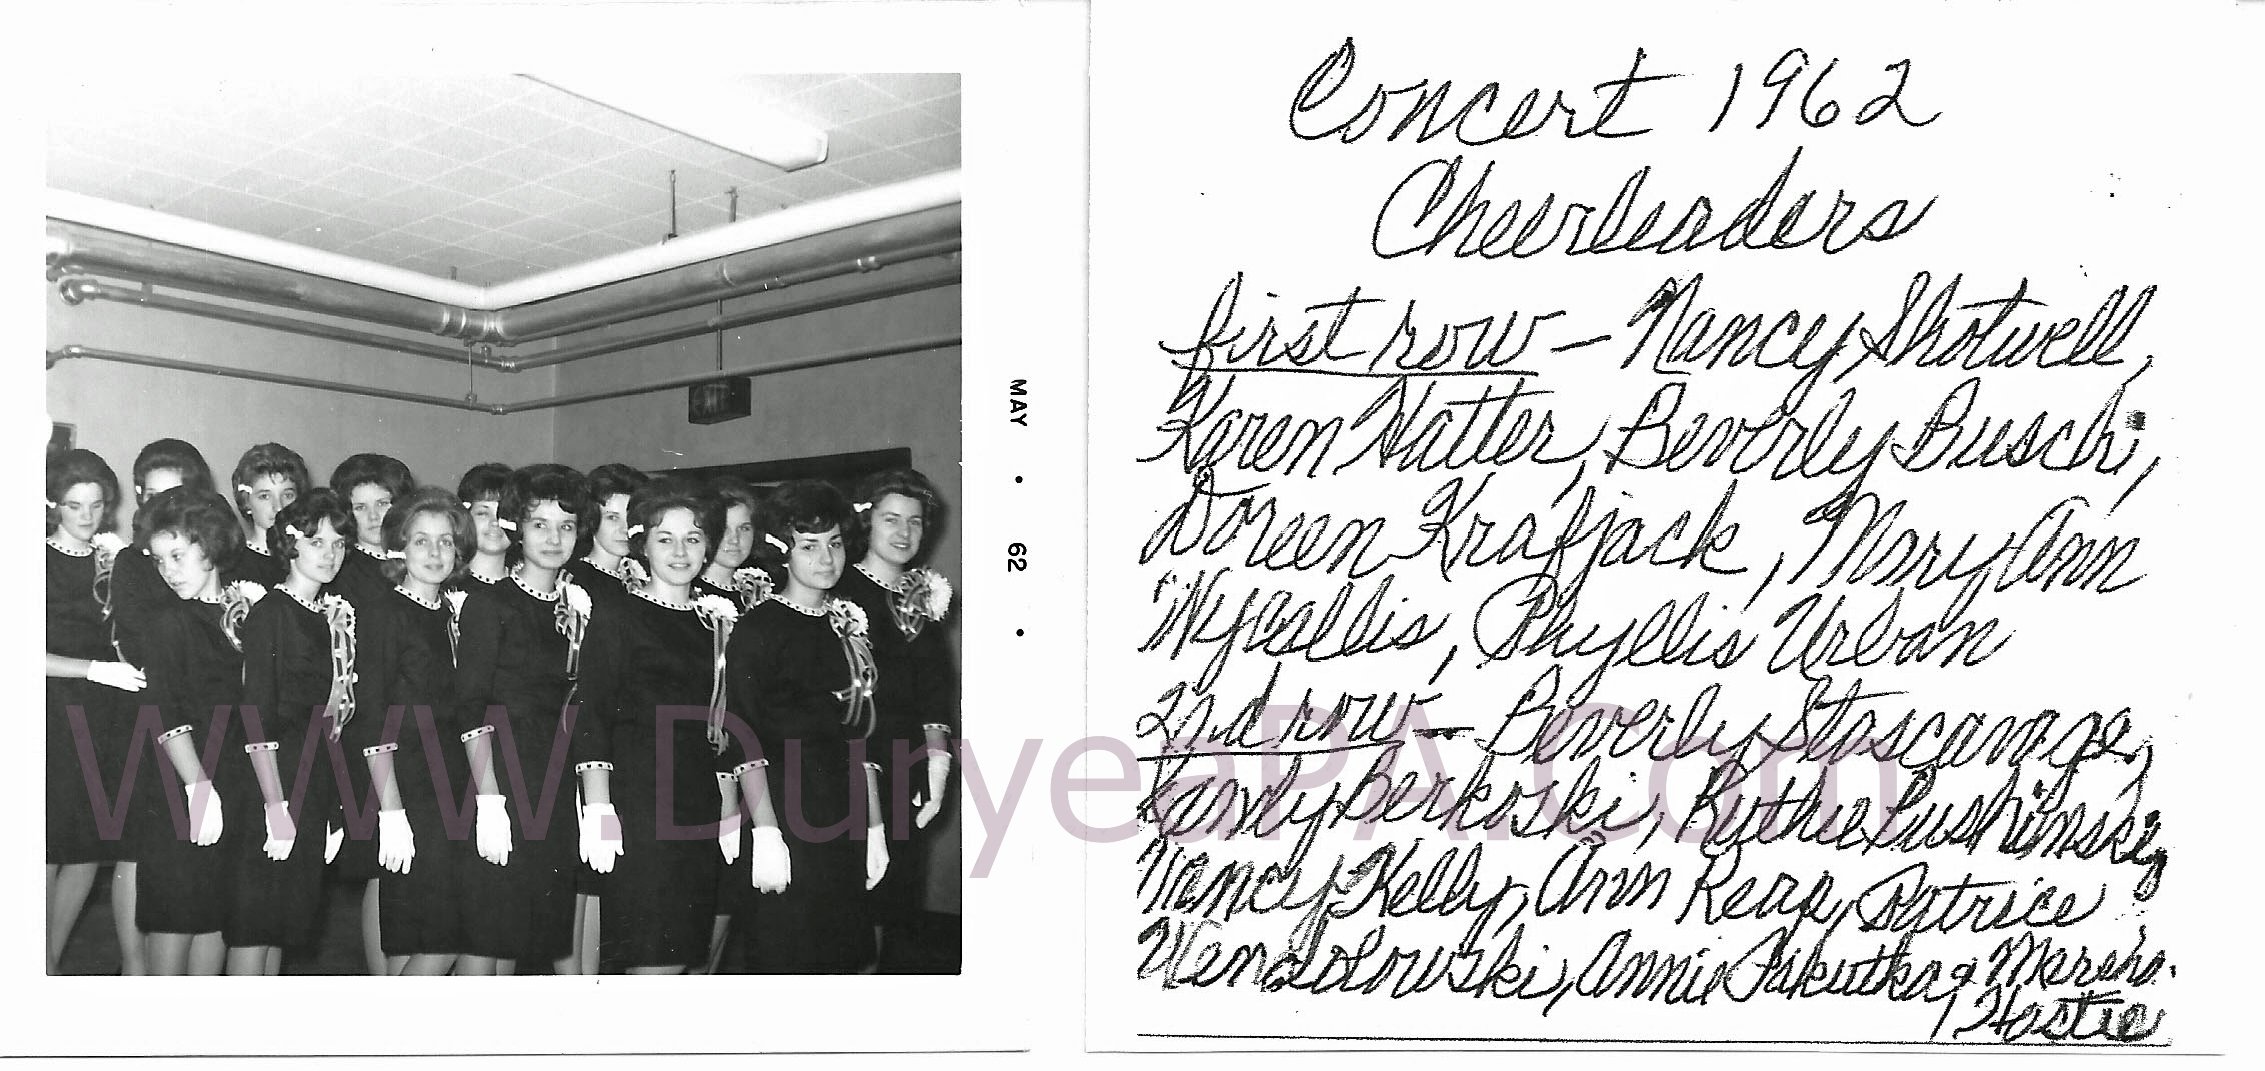 MAY • 62 •
Concert 1962
Cheerleaders
first row - Nancy Shotwell,
Karen Hatter, Beverly Busch,
Doreen Krafjack, Mary Ann
Wycallis, Phyllis Urban
2nd row - Beverly Stoscavage,
Berkoski, Ruthie Lushinski,
Nancy Kelly, Ann Reap, Patrice
Wendolowski, Annie Pakutka, Marsha
Hastie
WWW.DuryeaPA.Com